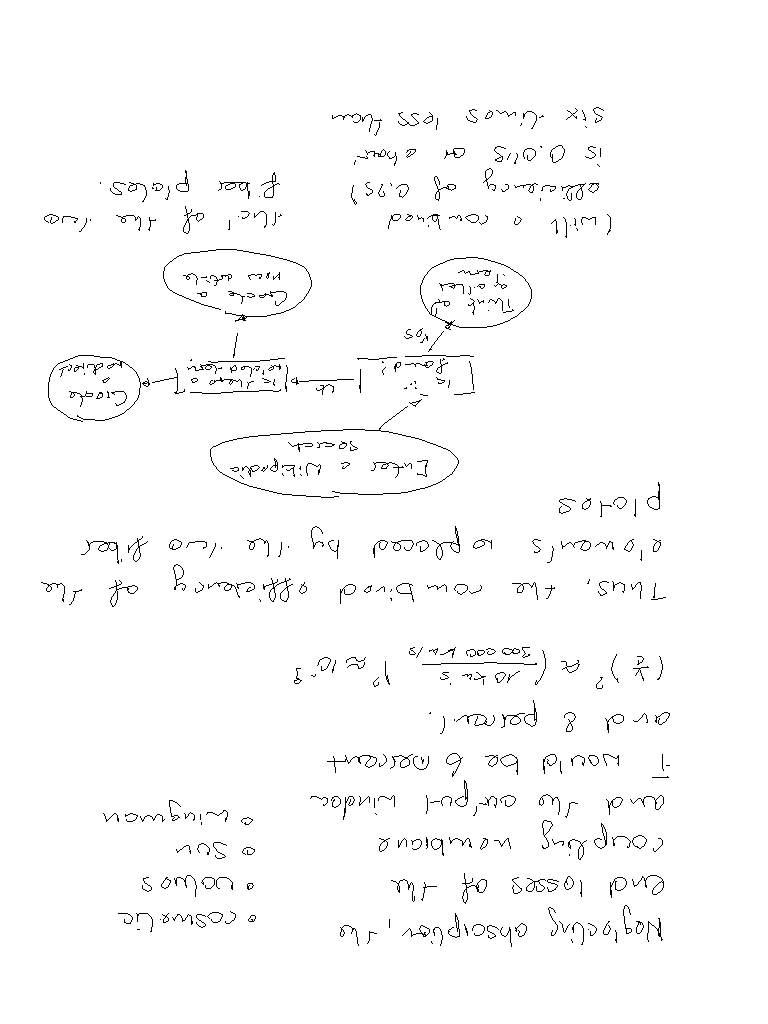 Neglecting absorption, the
end losses of the
coupling membrane
and the output window
T would be 6 percent
and 8 percent.
• cosmetic
• values
• sun
• wingman
(v/c)² ≈ (10 km/s / 300 000 km/s)² ≈ 10⁻⁹
Thus, the combined efficiency of the
elements replaced by the two fiber
plates
Enter a Wikipedia
search
Is it
found?
Yes
Think of
other
term
Is there a
related term
Create
a
redirect
Create a
new article
(with a combined
efficiency of 0.75)
is 0.045 or about
six times less than
that of the two
fiber plates.